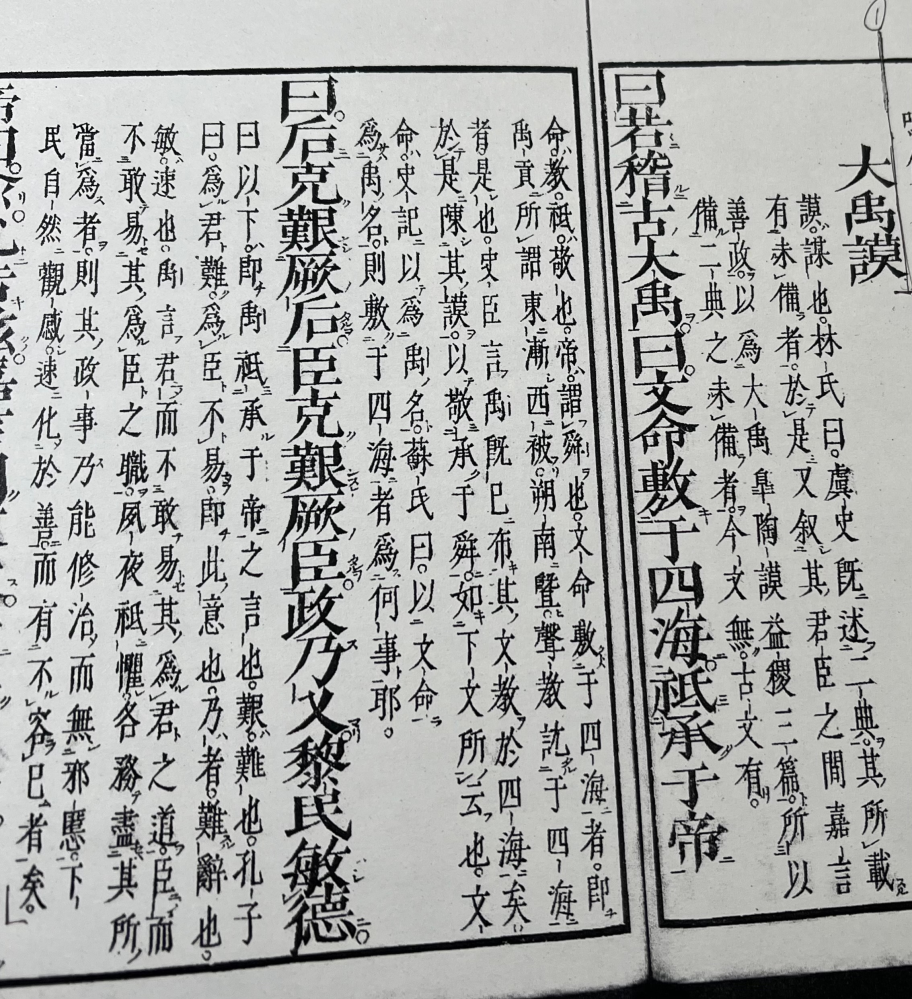 ①
大禹謨
謨。謀也。林氏曰。虞史既述二典。其所載
有未備者。於是又叙其君臣之間嘉言
善政。以為大禹皐陶謨益稷三篇。所以
備二典之未備者。今文無。古文有。
曰若稽古大禹。曰文命敷于四海。祗承于帝
命。教。祗。敬也。帝謂舜也。文命敷于四海者。即
禹貢所謂東漸西被。朔南曁聲教訖于四海
者是也。史臣言禹既已布其文教於四海矣。
於是陳其謨。以敬承于舜。如下文所云也。文
命。史記以為禹名。蘇氏曰。以文命
為禹名。則敷于四海者為何事耶。
曰。后克艱厥后。臣克艱厥臣。政乃乂。黎民敏德。
曰以下。即禹祗承于帝之言也。艱。難也。孔子
曰。為君難。為臣不易。即此意也。乃者。難辭也。
敏。速也。禹言君而不敢易其為君之道。臣而
不敢易其為臣之職。夙夜祗懼。各務盡其所
當為者。則其政事乃能修治。而無邪慝。下
民自然觀感。速化於善。而有不容已者矣。
帝曰。